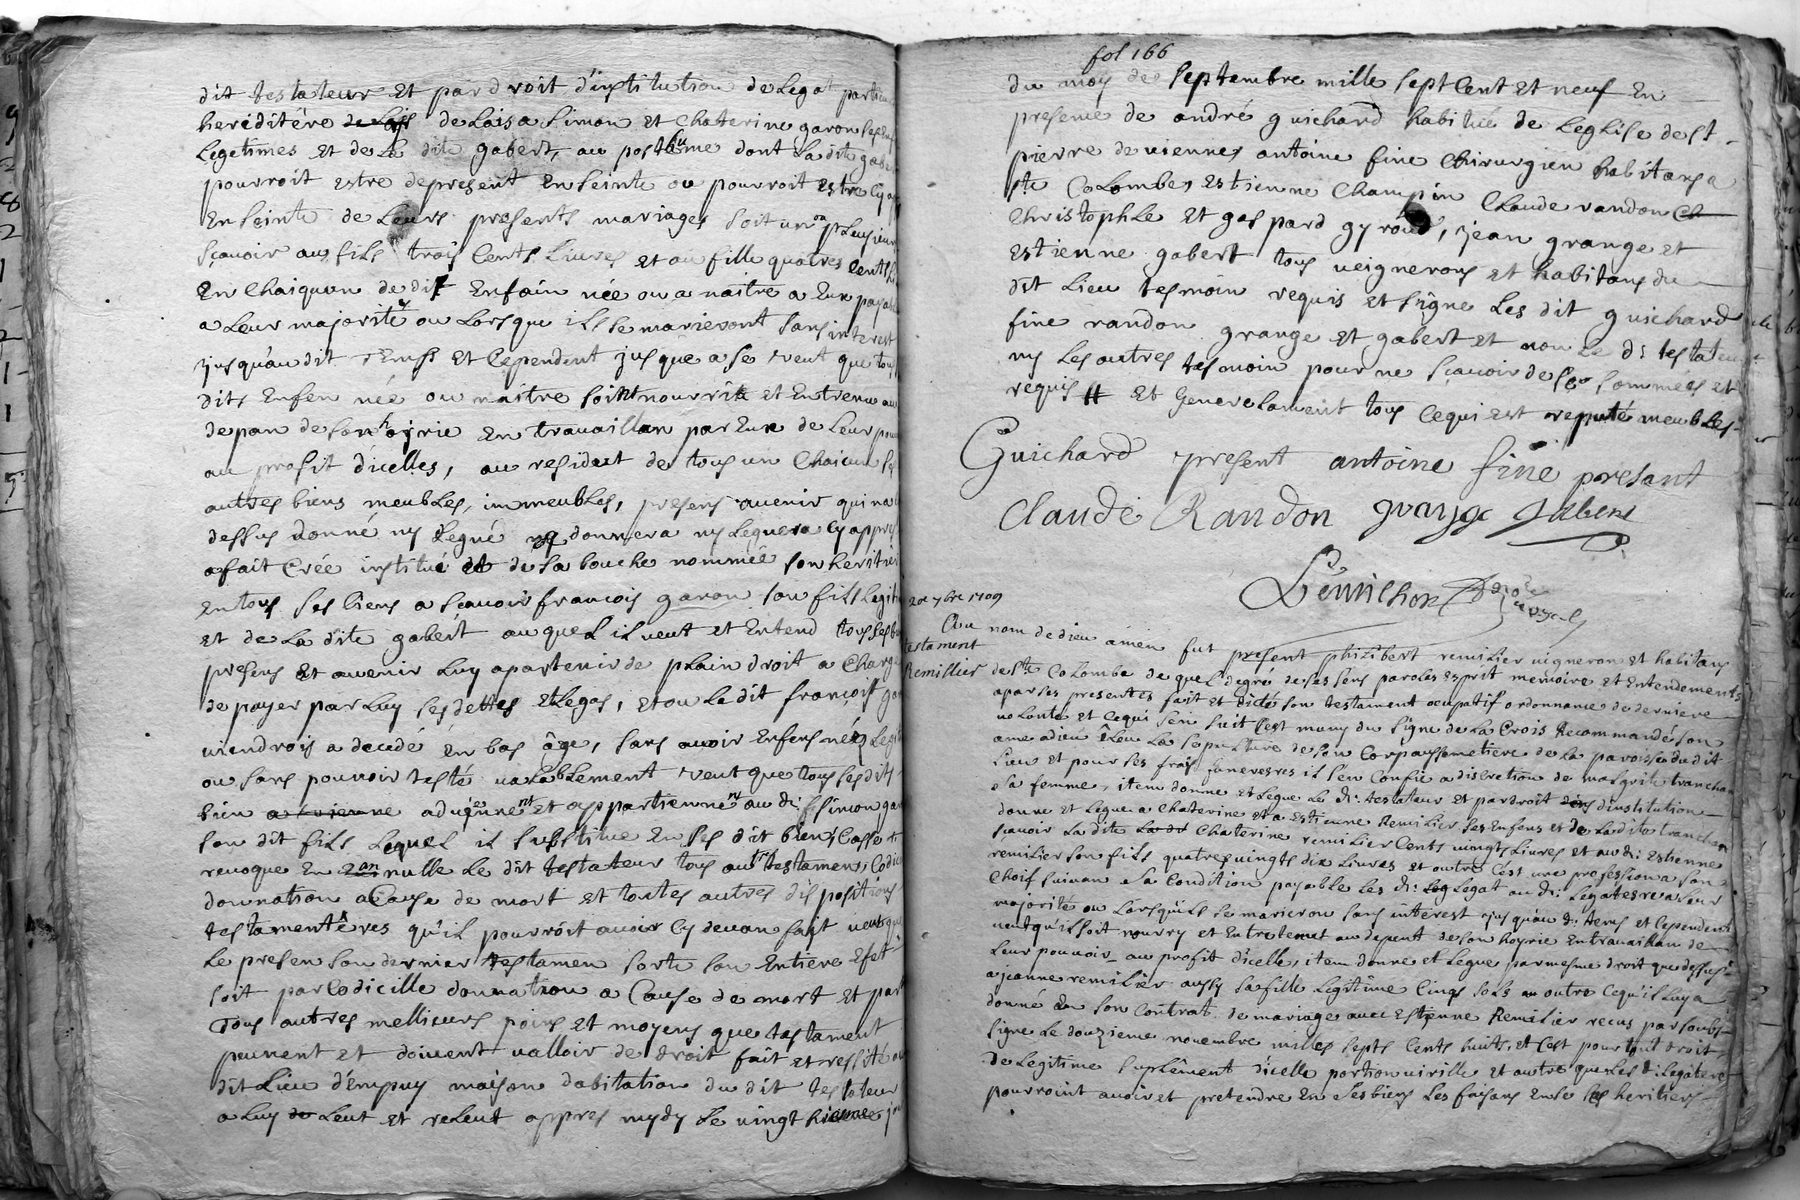 dit testateur et par droit d'institution de legat particu
héréditére de Laisa Simon et Chaterine garon ses
Legetimes et de la dite gabert, au posthume dont la dite gabe
pourroit estre depresent Enseinte ou pourroit estre cy ap
Enseinte de Leurs presents mariages soit un ou pLeusieurs
sçauoir au fils trois Cents Liures et au fille quatres Cents
En Chaiquun de dit Enfain née ou a naitre a Eux payab
a Leur majorité ou Lorsque ils se marieront sans interest
jusqu'au dit temps et Cependent jusque a se veut que tous
dits Enfen née ou naitre soint nourris et Entrenu au
depan de son hoirie En trauaillan par Eux de Leur pou
au profit dicelles, au residut de tous un Chaicun ses
autres biens meubLes, immeubLes, presens auenir qui na
dessus donné ny Legué ny donnera ny Leguera cy appres
a fait Créé institué et de sa bouche nommée son heritier
En tous ses biens a sçauoir francois garon son fils Legit
et de La dite gabert auquel il ueut et Entend tous ses b
presens et auenir Luy apartenir de plain droit a Charge
de payer par Luy ses dettes et Legas, et ou Le dit françois gar
uiendrois a decedé en bas âge, sans auoir Enfens nées Legit
ou sans pouvoir testé uaLabLement veut que tous ses dits
bien aduiennent et appartiennent au dit Simon gar
son dit fils Lequel il substitue En ses dit biens Casse et
reuoque En nulle Le dit testateur tous autres testamens Codici
donnation a Cause de mort et toutes autres dispositions
testamentéres qu'il pourroit auoir cy deuan fait ueut que
Le presen son dernier testamen sorte son Entiere Efet
soit par Codicille donnation a Cause de mort et par
Tous autres mellieurs poins et moyens que testament
peuuent et doiuent ualloir de droit fait et ressité au
dit Lieu d'Empuy maison dabitation du dit testateur
a Luy Leut et reLeut appres mydy Le uingt
fol 166
du moy de septembre mille sept Cent et neuf En
presence de andré guichard habitué de Leglise de st
pierre de uiennes antoine fine Chirurgien habitans a
ste CoLombe, estienne Champin Claude randon
ChristophLe et gaspard gyroud, jean grange et
estienne gabert tous ueignerons et habitans du
dit Lieu tesmoin requis et signe Les dit guichard
fine randon grange et gabert et non Le dt testateur
ny Les autres tesmoin pour ne sçauoir de Ce sommées et
requis # et Generelament tous Cequi est reputé meubLes
Guichard present antoine fine presant
Claude Randon grange Gabert
20e 7bre 1709
testament
Remillier
Au nom de dieu amen fut present phizibert remilier uigneron et habitans
de ste CoLombe de quel degré de ses sens paroles esprit mémoire et Entendement
a par ses presentes fait et dicté son testament ocupatif ordonnance de derniere
uoLonté et Cequi sen suit C'est muny du signe de La Crois Recommandé son
ame a dieu éLeu La sepulture de son Corps au semetiere de La paroisse du dit
Lieu et pour ses frais funeresres il s'en Confie a discretion de margrite tranchan
sa femme, item donne et Legue Le dt: testateur et par droit d'institution
donne et Legue a Chaterine et a Estienne Remilier ses Enfens et de La dite tranchan
scauoir La dite Chaterine remilier Cents uingts Liures et au dt: Estienne
remilier son fils quatresuingts dix Liures et outre C'est une profession a son
Choif suiuan sa Condition payable Les dt: Legat au dt: Legateres a Leur
majorité ou Lorsqu'ils se marierou sans interest jusqu'au dt: tems et Cependent
ueut qu'il soit nourry et Entretenut au depent de son hoyrie En trauaillan de
Leur pouuoir au profit dicelle, item donne et Legue par mesme droit que dessus
a jeanne remilier aussy sa fille Legitime Cinqs sols en outre Cequ'il Luy a
donné En son Contrat de mariage auec Estienne Remilier recus par soubs
signe Le douzieme nouembre milles septs Cents huits, et C'est pour tout droit
de Legitime suplément d'icelle portion uirille et autre que Les dt: Legatere
pourroint auoir et pretendre En ses biens Les faisans En ses heritiers